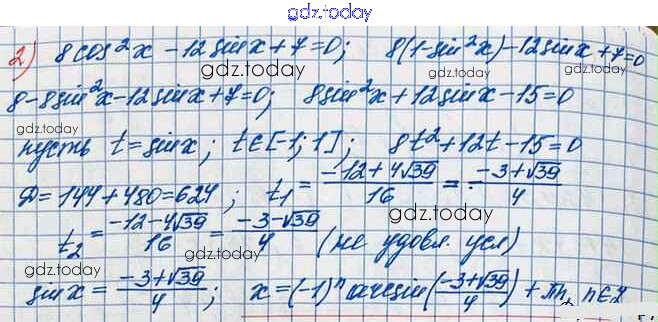 gdz.today
2) 8cos²x - 12sinx + 7 = 0; 8(1-sin²x) - 12sinx + 7 = 0
gdz.today gdz.today
8 - 8sin²x - 12sinx + 7 = 0; 8sin²x + 12sinx - 15 = 0
gdz.today
пусть t = sinx; t∈[-1; 1]; 8t² + 12t - 15 = 0
gdz.today
Д = 144 + 480 = 624; t₁ = (-12 + 4√39)/16 = (-3+√39)/4
gdz.today
t₂ = (-12 - 4√39)/16 = (-3-√39)/4 (не удовл. усл)
gdz.today gdz.today
sinx = (-3+√39)/4; x = (-1)ⁿ arcsin((-3+√39)/4) + πn, n∈Z
gdz.today